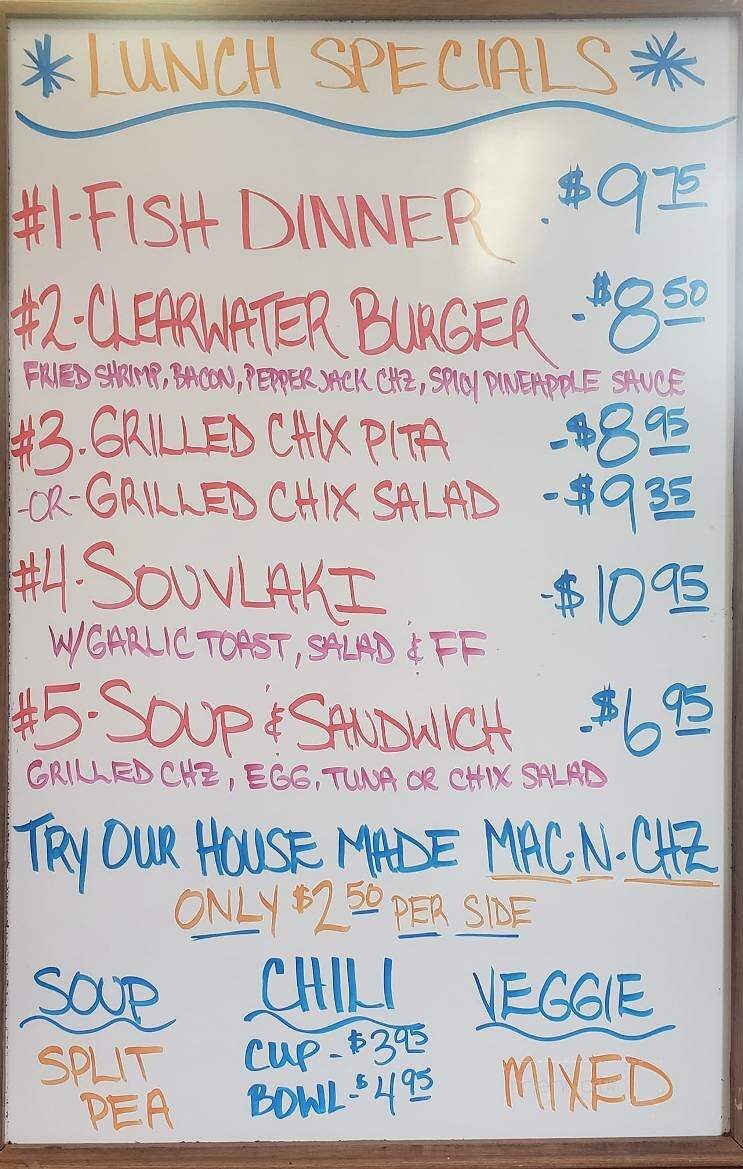 * LUNCH SPECIALS *
#1-FISH DINNER -$9.75
#2-CLEARWATER BURGER -$8.50
FRIED SHRIMP, BACON, PEPPER JACK CHZ, SPICY PINEAPPLE SAUCE
#3.GRILLED CHIX PITA -$8.95
-OR-GRILLED CHIX SALAD -$9.35
#4-SOUVLAKI -$10.95
W/GARLIC TOAST, SALAD & FF
#5-SOUP & SANDWICH -$6.95
GRILLED CHZ, EGG, TUNA OR CHIX SALAD
TRY OUR HOUSE MADE MAC-N-CHZ
ONLY $2.50 PER SIDE
SOUP CHILI VEGGIE
SPLIT CUP-$3.95 MIXED
PEA BOWL-$4.95